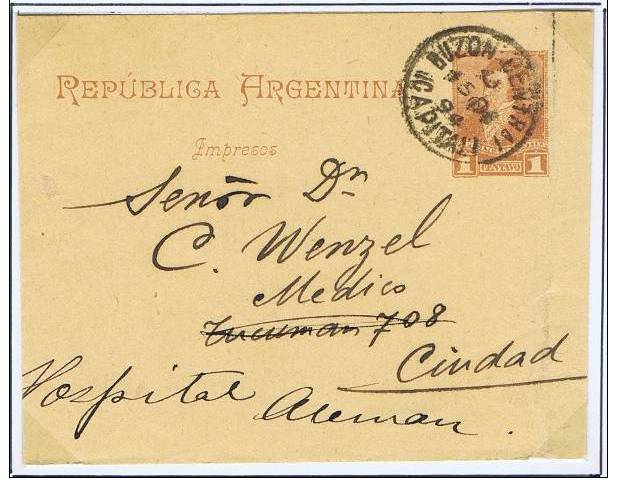 REPÚBLICA ARGENTINA
Impresos
BUZON CENTRAL
1 CENTAVO 1
Señor Dn
C. Wenzel
Medico
Tucuman 708
Ciudad
Hospital Aleman.